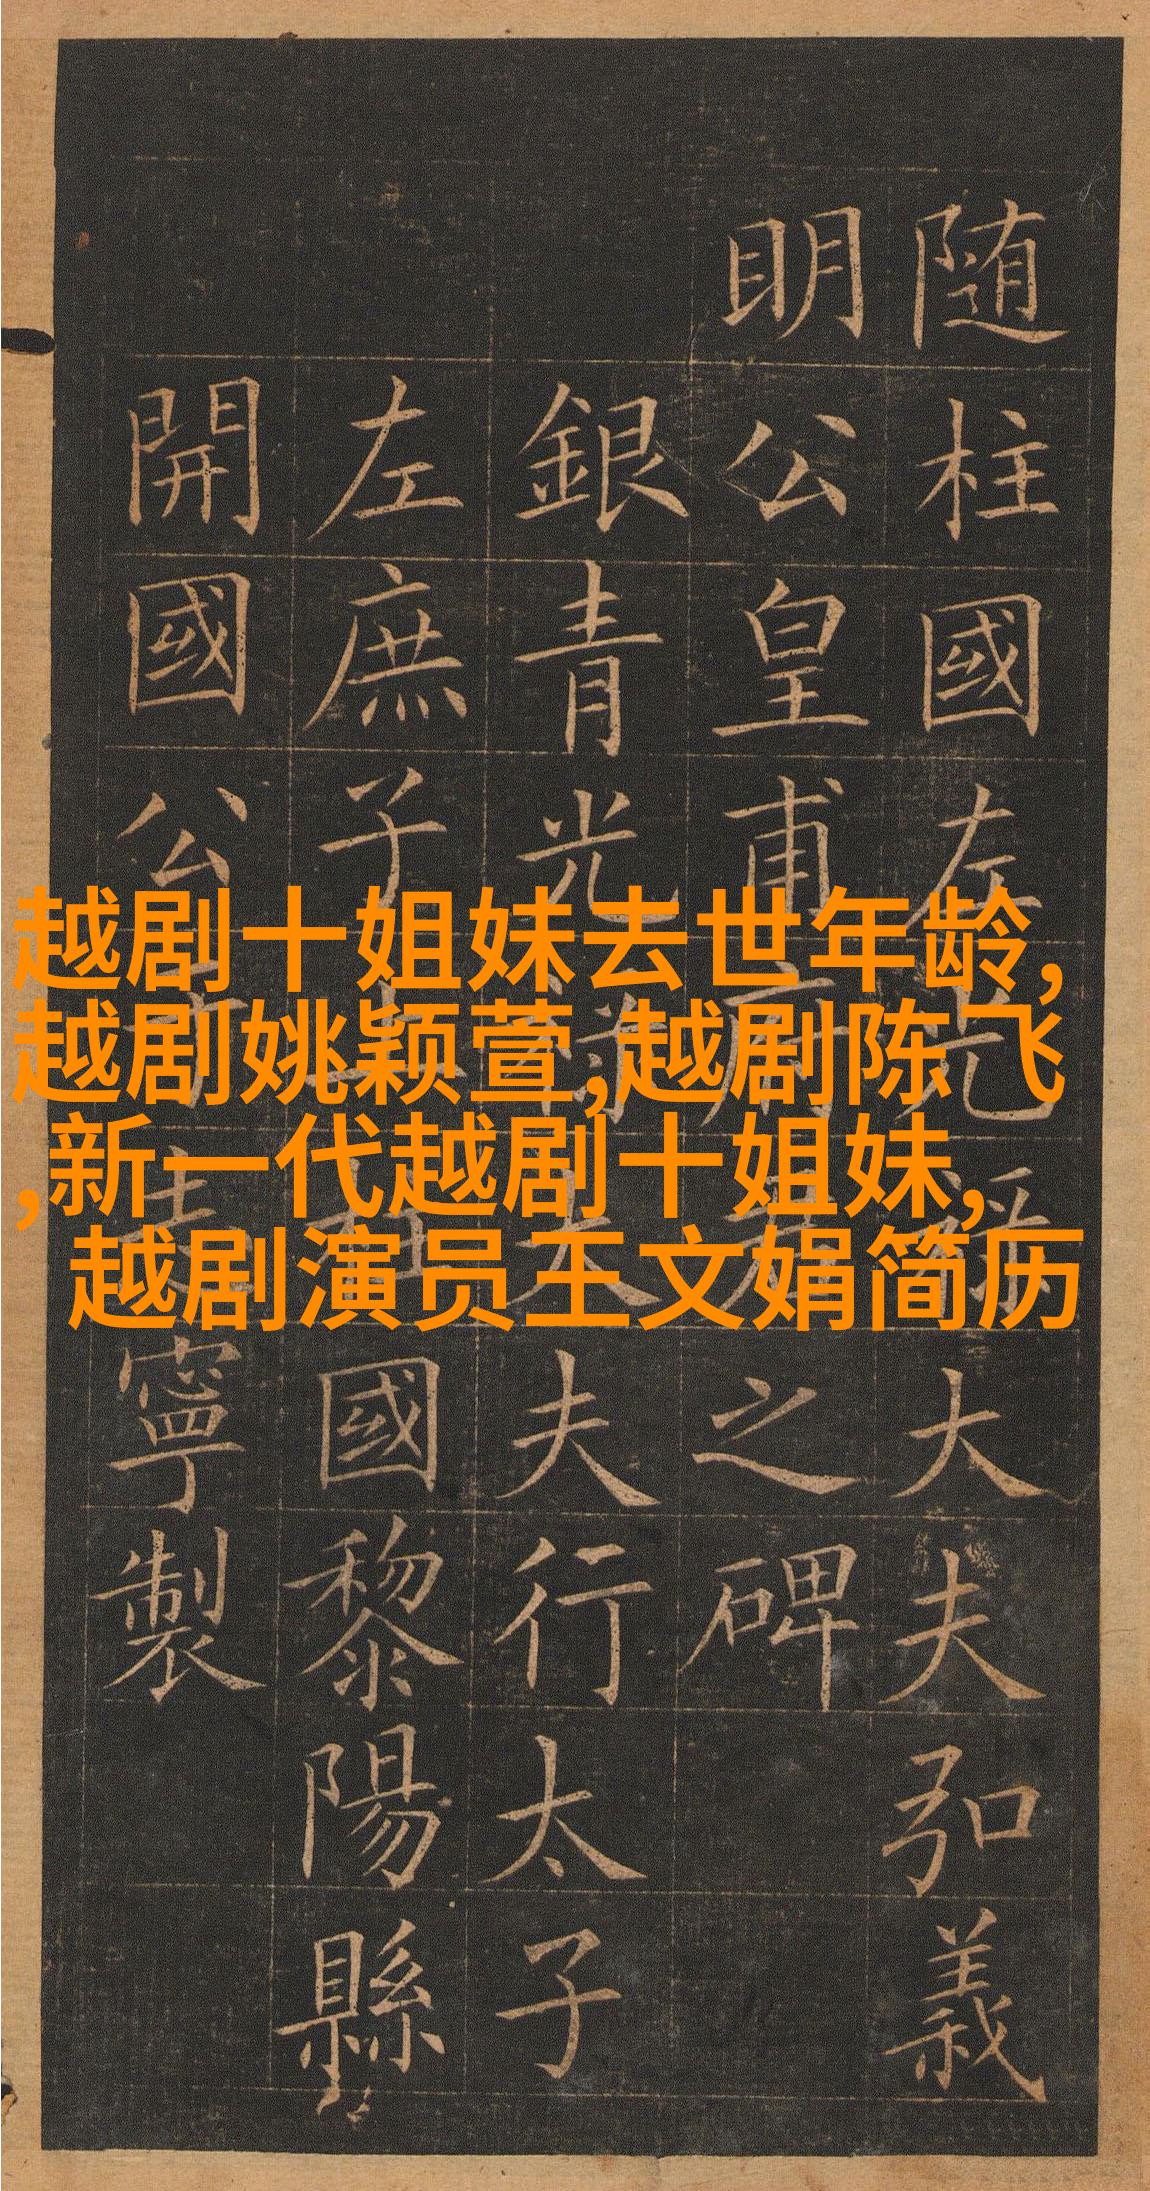 随柱國左光祿大夫弘義
明公皇甫府君之碑
銀青光祿大夫行太子
左庶子上柱國黎陽縣
開國公于志寧製
越剧十姐妹去世年龄,
越剧姚颖萱,越剧陈飞
,新一代越剧十姐妹,
越剧演员王文娟简历